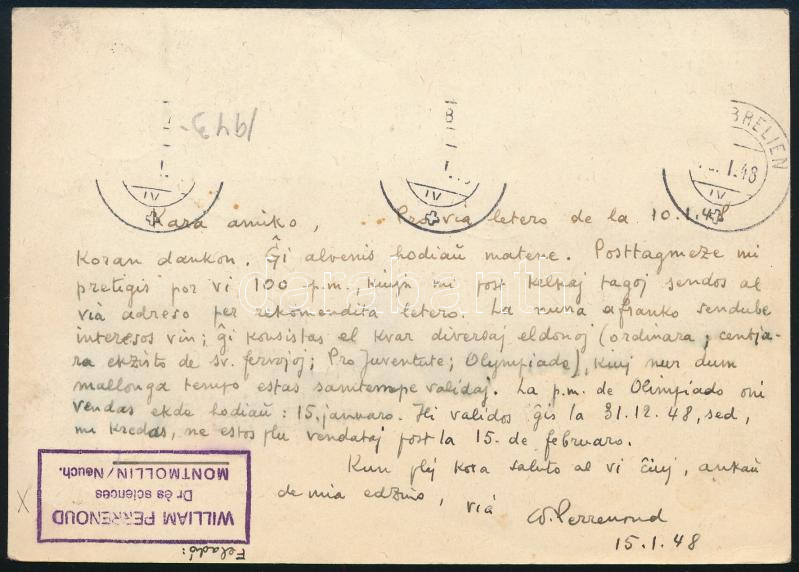 1943-
B
BRELIEN
I.48
IV
IV
IV
Kara amiko, Pro via letero de la 10.1.48
koran dankon. Ĝi alvenis hodiaŭ matene. Posttagmeze mi
pretigis por vi 100 p.m., kiujn mi post kelkaj tagoj sendos al
via adreso per rekomendita letero. La nuna afranko sendube
interesos vin; ĝi konsistas el kvar diversaj eldonoj (ordinara; centja-
ra ekzisto de sv. fervojoj; Pro Juventute; Olympiado), kiuj nur dum
mallonga tempo estas samtempe validaj. La p.m. de Olimpiado oni
vendas ekde hodiaŭ: 15. januaro. Ili validos ĝis la 31.12.48, sed,
mi kredas, ne estos plu vendataj post la 15. de februaro.
Kun plej kora saluto al vi ĉiuj, ankaŭ
de mia edzino, via
W. Perrenoud
15.1.48
Feladó:
WILLIAM PERRENOUD
Dr ès sciences
MONTMOLLIN/Neuch.
X
darabanth